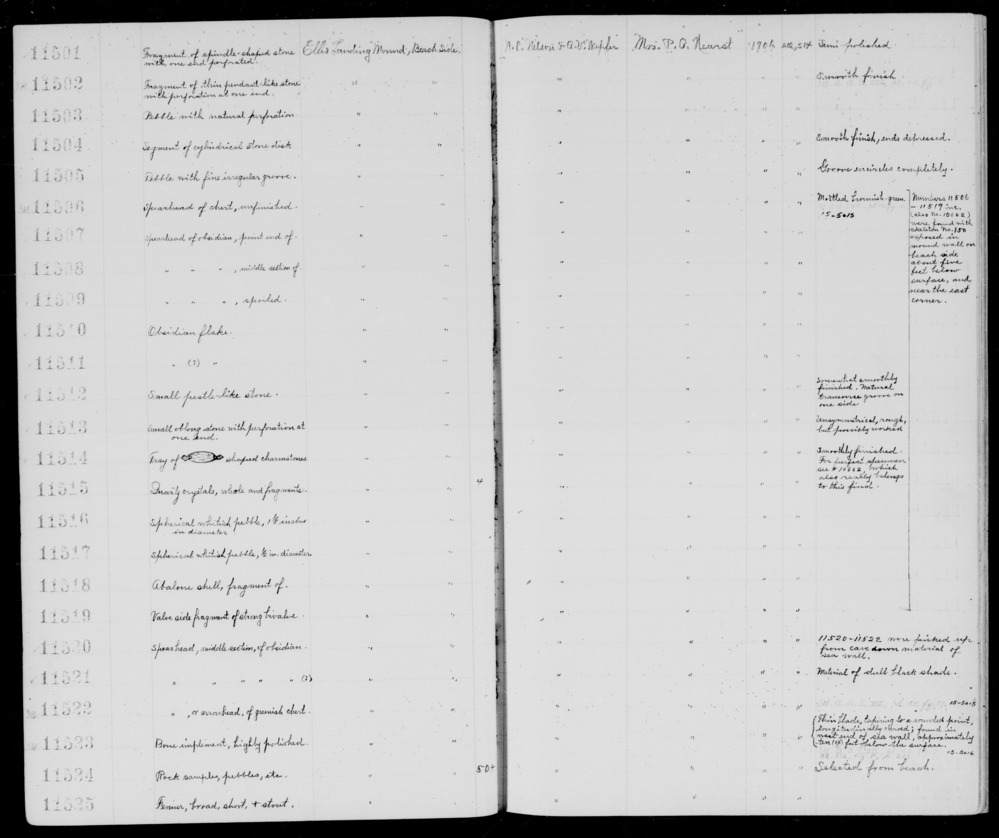 11501 Fragment of spindle-shaped stone Ellis Landing Mound, Beach Side. N. C. Nelson & A. W. Mrs. P. A. Hearst 1906 Semi polished
with one end perforated.
11502 Fragment of thin pendant-like stone " " " " " " Smooth finish
with perforation at one end.
11503 Pebble with natural perforation " " " " " "
11504 Segment of cylindrical stone disk " " " " " " Smooth finish, ends depressed.
11505 Pebble with fine irregular groove. " " " " " " Groove encircles completely.
11506 Spearhead of chert, unfinished. " " " " " " Mottled brownish-green.
15-5015
Numbers 11506
– 11519 inc.
(also No. 10662)
were found with
skeleton No. 150
exposed in
mound wall on
beach side
about five
feet below
surface, and
near the east
corner.
11507 Spearhead of obsidian, point end of. " " " " " "
11508 " " " , middle section of " " " " " "
11509 " " " , spoiled. " " " " " "
11510 Obsidian flake. " " " " " "
11511 " (?) " " " " " " "
11512 Small pestle-like stone. " " " " " " Somewhat smoothly
finished. Natural
transverse groove on
one side
11513 Small oblong stone with perforation at " " " " " " Unsymmetrical, rough,
one end. but possibly worked
11514 Frag of shaped charmstones " " " " " " Smoothly finished.
For perfect specimen
see # 10662, which
also really belongs
to this find.
11515 Quartz crystals, whole and fragments. " " 4 " " " "
11516 Spherical whitish pebble, inches " " " " " "
in diameter
11517 Spherical whitish pebble, ½ in. diameter " " " " " "
11518 Abalone shell, fragment of. " " " " " "
11519 Valve side fragment of strong bivalve. " " " " " "
11520 Spearhead, middle section, of obsidian " " " " " " 11520–11522 were picked up
from cave down material of
sea wall.
11521 " " " " " (?) " " " " " " Material of dull black shade.
11522 " , " arrowhead, of greenish chert " " " " " " 15-5018
11523 Bone implement, highly polished. " " " " " " Thin blade, tapering to a rounded point,
longitudinally curved; found in
west end of sea wall, approximately
ten (10) feet below the surface.
11524 Rock samples, pebbles, etc. " " 50+ " " " " Selected from beach.
11525 Femur, broad, short, & stout. " " " " " "